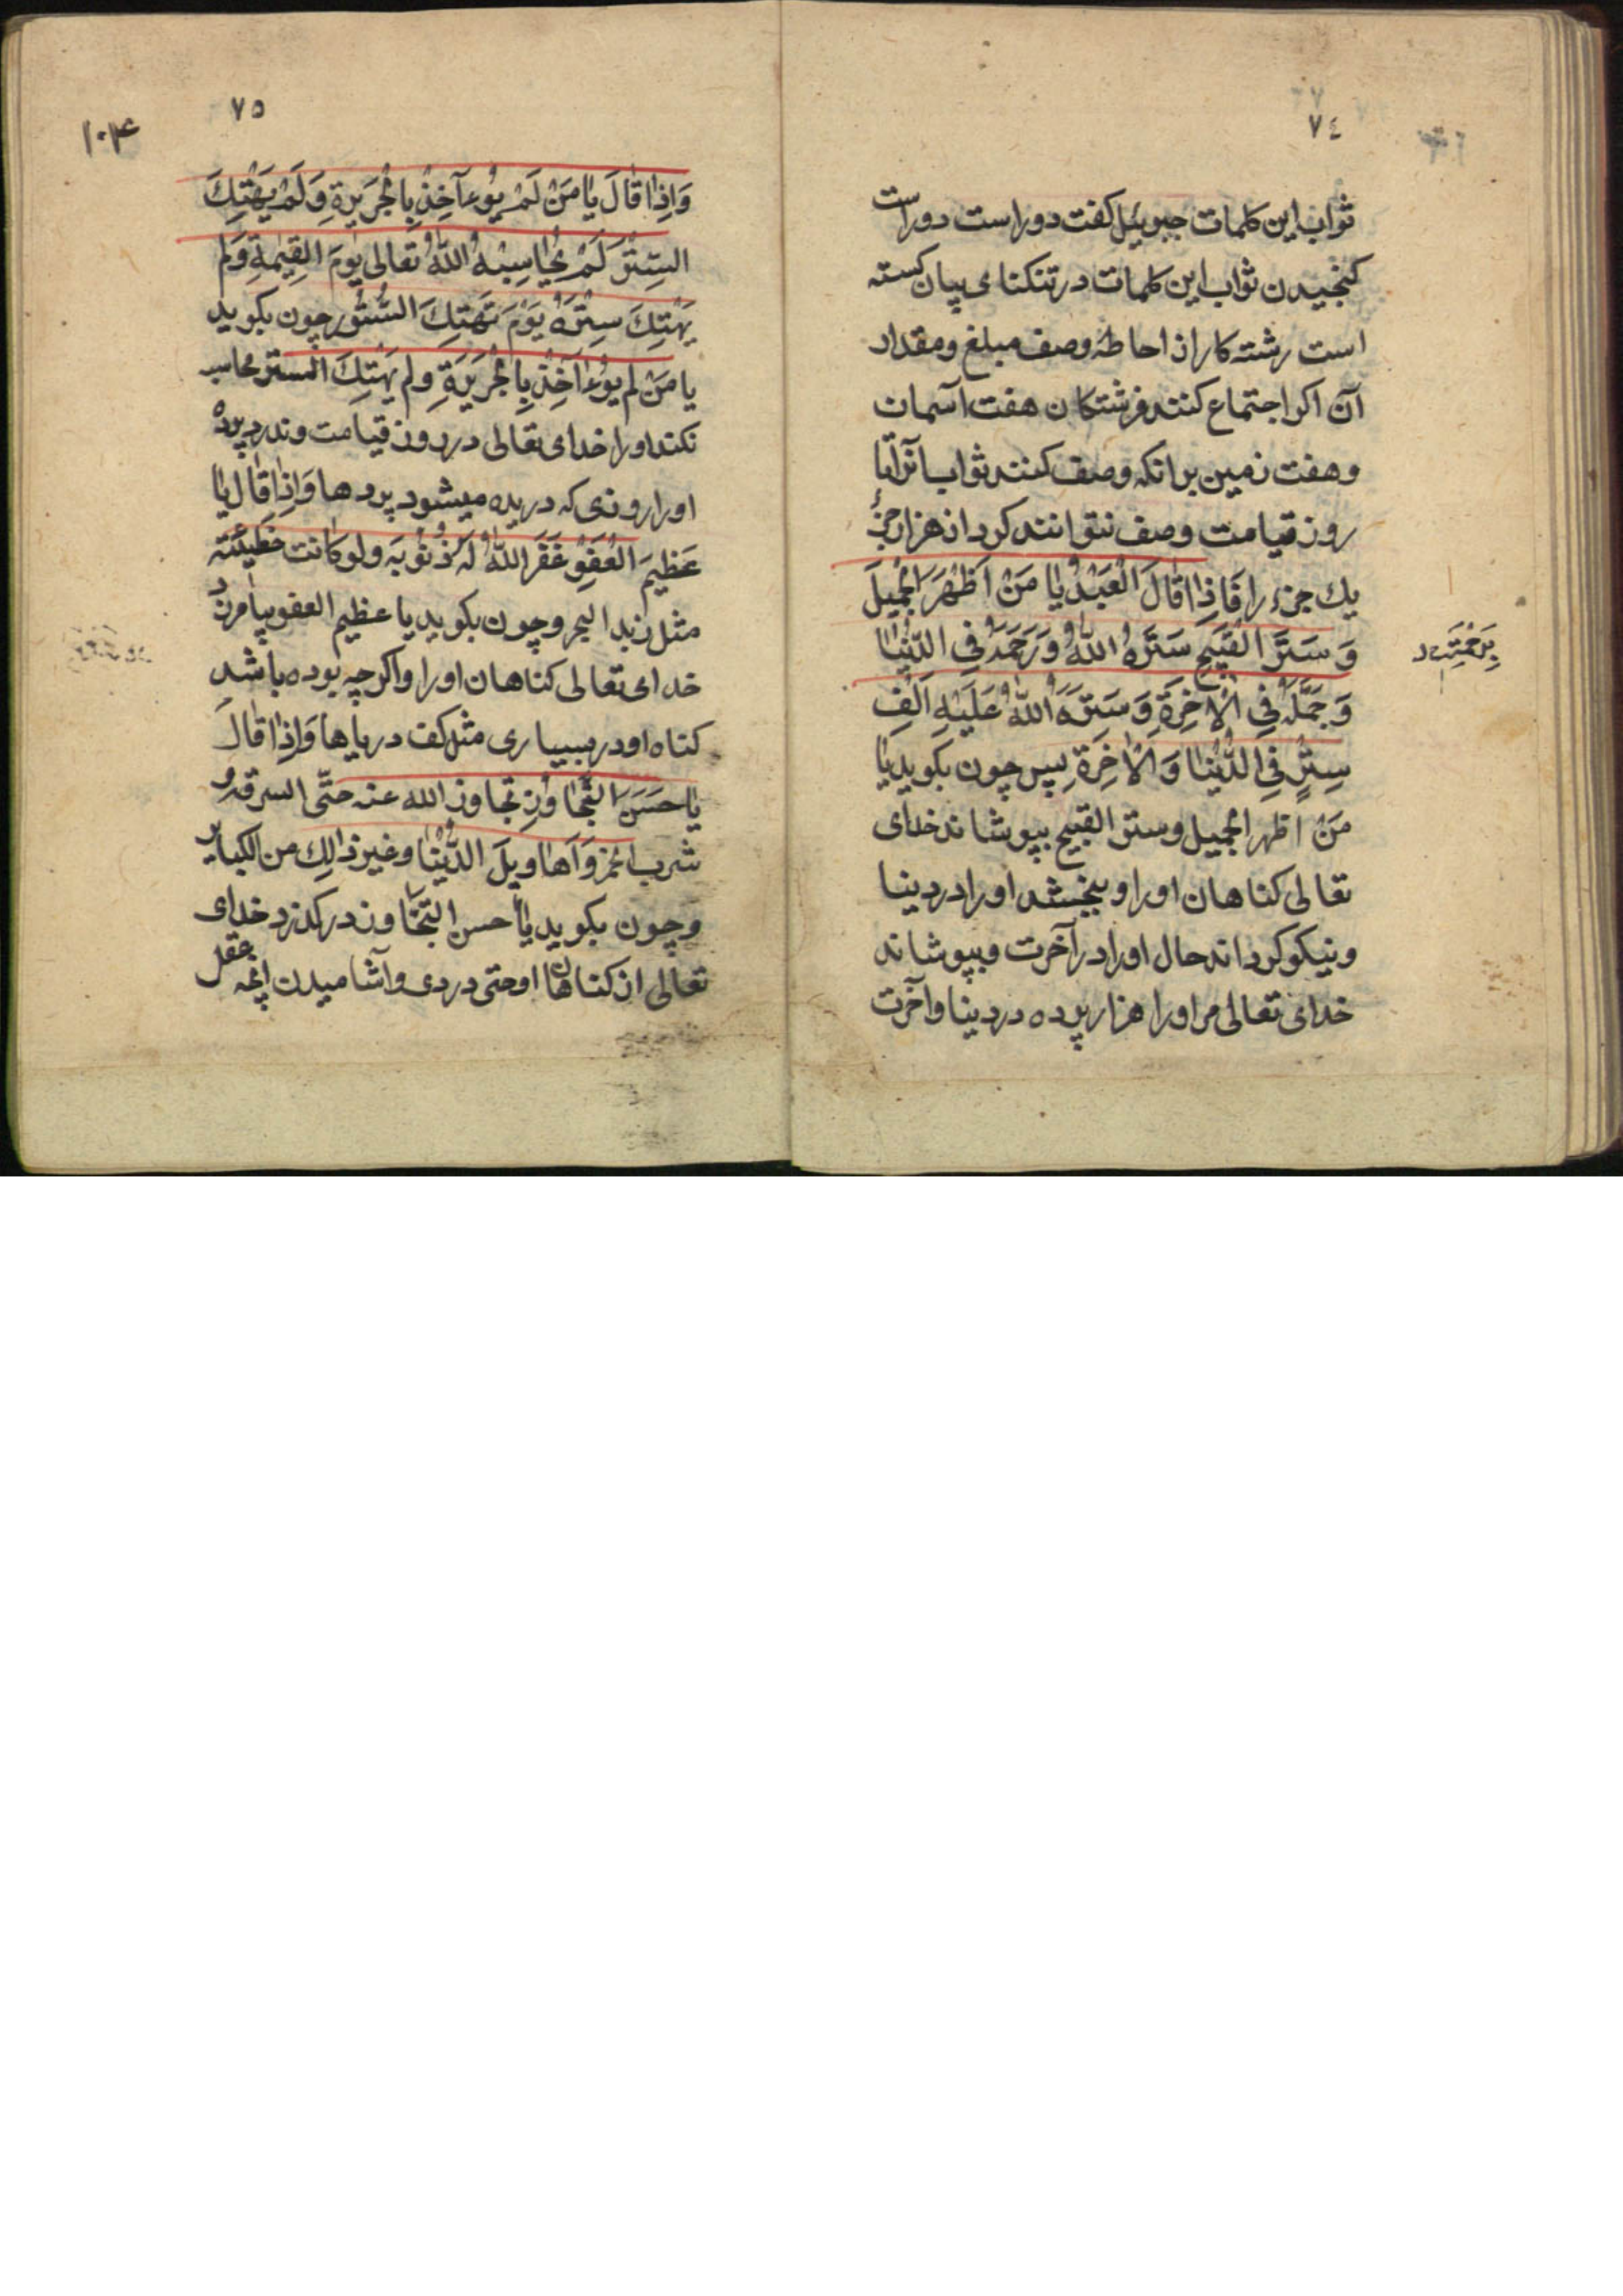 ٧٤
ثواب این کلمات جبرئیل کفت دوراست دوراست
کنجیدن ثواب این کلمات در تنکنای بیان کسته
است رشته کار از احاطهٔ وصف مبلغ ومقدار
آن اکر اجتماع کنند فرشتکان هفت آسمان
وهفت زمین برانکه وصف کنند ثواب آنرا تا
روز قیامت وصف نتوانند کرد از هزار جزء
یك جزء را فَاِذٰا قٰالَ الْعَبْدُ یٰا مَنْ اَظْهَرَ الْجَمیلَ
وَ سَتَرَ الْقَبیحَ سَتَرَهُ اللّٰهُ وَ رَحِمَهُ فِی الدُّنْیٰا
وَ جَمَّلَهُ فِی الْاٰخِرَةِ وَ سَتَرَهُ اللّٰهُ عَلَیْهِ اَلْفَ
سِتْرٍ فِی الدُّنْیٰا وَ الْاٰخِرَةِ پس چون بکوید یٰا
مَنْ اظهر الجمیل وستر القبیح بپوشاند خدای
تعالی کناهان اورا و ببخشد اورا در دینا
ونیکو کرداند حال اورا در آخرت وبپوشاند
خدای تعالی مر اورا هزار پرده در دینا وآخرت
٧٥
١٠۴
وَاِذٰا قٰالَ یٰا مَنْ لَمْ یُوءآخِذْ بِالْجَرَیرَةِ وَ لَمْ یَهْتِكَ
السِتْرَ لَمْ یُحٰاسِبْهُ اللّٰهُ تَعٰالی یَوْمَ الْقِیٰمَةِ وَ لَم
یَهْتِكَ سِتْرَهُ یَوْمَ تَهْتِكَ السُّتُور چون بکوید
یا مَنْ لَم یُوءاَخِذْ بِالْجَرَیرَةِ ولم یَهْتِكَ السترَ محاسبه
نکند اورا خدای تعالی در روز قیامت وندرد پرده
اورا روزی که دریده میشود پردها وَاِذٰا قٰالَ یٰا
عَظیمَ الْعَفْوِ غَفَرَ اللّٰهُ لَهُ ذُنُوبَه ولو کانت خَطیئَته
مثل زبد البحر وچون بکوید یا عظیم العفو بیامرزد
خدای تعالی کناهان اورا واکر چه بوده باشد
کناه او در بسیاری مثل کف دریاها وَاِذٰا قٰالَ
یٰا حَسَنَ التَّجٰاوُزِ تجاوز الله عنه حتّی السرقه و
شرب الخمر وَ اَهٰاویلَ الدُّنْیٰا وغیر ذٰالِك من الکبایر
وچون بکوید یٰا حسن التّجٰاوز درکذرد خدای
تعالی از کناهان او حتی دردی وآشامیدن آنچه عقل